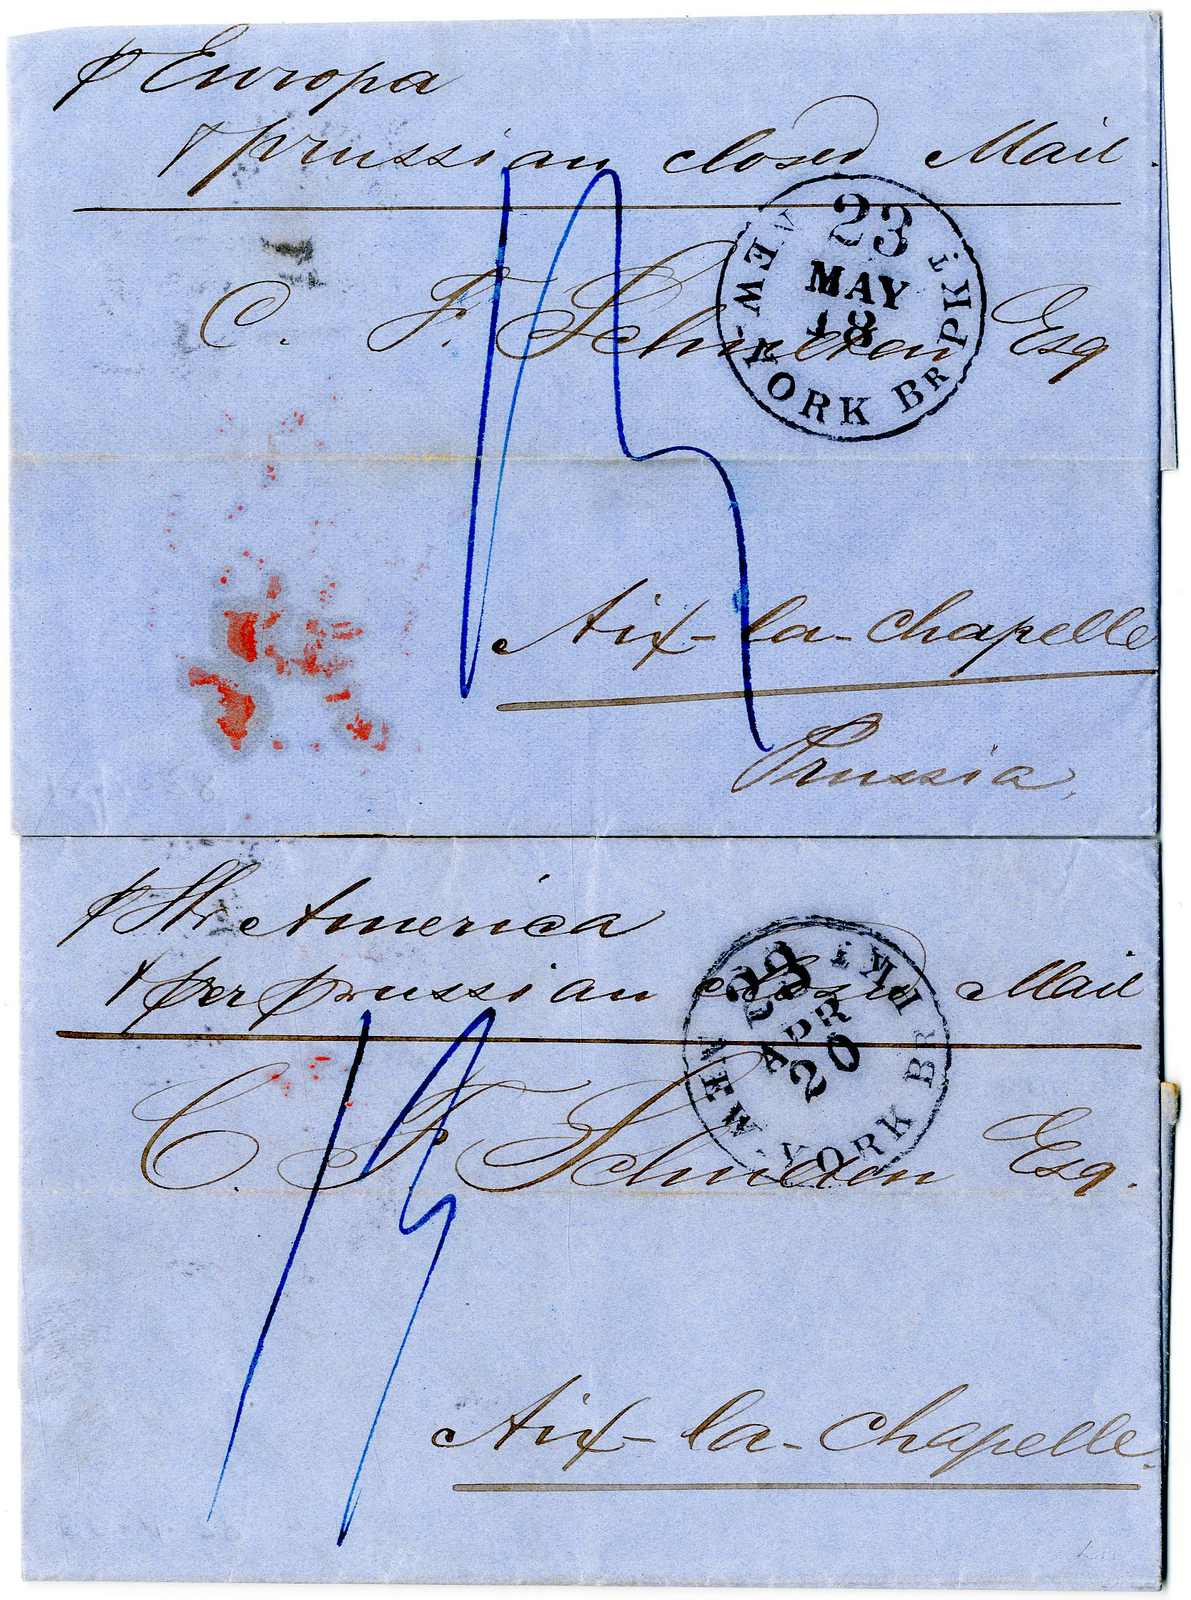 p Europa
& prussian closed Mail.
23
MAY
18
NEW-YORK BR PKT
C. F. Esq
13
Aix-la-chapelle
Prussia.
p Str America
& per prussian closed Mail
23
APR
20
NEW-YORK BR PKT
C. F. Esq.
13
Aix-la-chapelle.